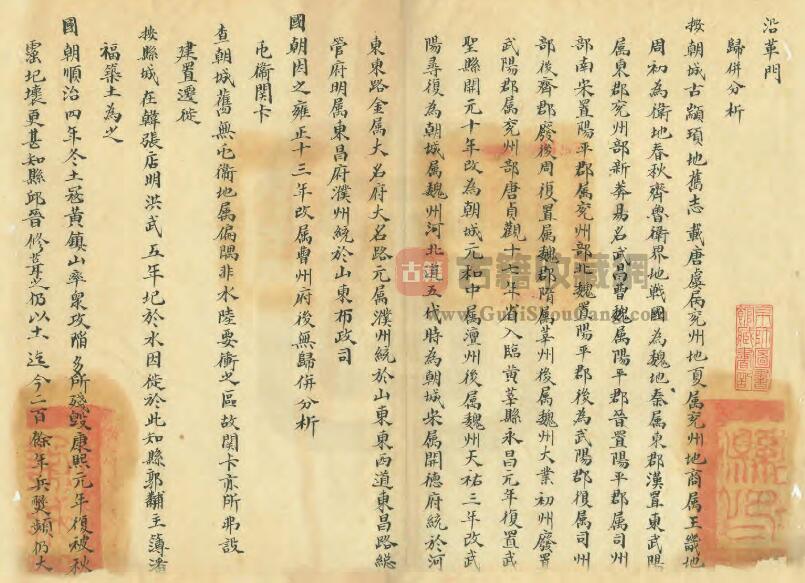 沿革門
歸併分析
按朝城古顓頊地舊志載唐虞属兖州地夏属兖州地商属王畿地
周初為衛地春秋齊魯衛界地戰國為魏地秦属東郡漢置東武陽
属東郡兖州部新莽易名武昌曹魏属陽平郡晉置陽平郡属司州
部南宋置陽平郡属兖州部北魏置陽平郡後為武陽郡復属司州
部後齊郡廢後周復置属魏郡隋属莘州後属魏州大業初州廢置
武陽郡属兖州部唐貞觀十七年省入臨黄莘縣永昌元年復置武
聖縣開元十年改為朝城元和中属澶州後属魏州天祐三年改武
陽尋復為朝城属魏州河北道五代時為朝城宋属開德府統於河
東東路金属大名府大名路元属濮州統於山東東西道東昌路總
管府明属東昌府濮州統於山東布政司
國朝因之雍正十三年改属曹州府後無歸併分析
屯衛関卡
查朝城舊無屯衛地属偏隅非水陸要衝之區故関卡亦所弗設
建置遷徙
按縣城在韓張店明洪武五年圮於水因徙於此知縣郭黼主簿潘
福築土為之
國朝順治四年冬土冦黄鎮山率衆攻陷多所殘毁康熙元年復被秋
霖圮壞更甚知縣邱晉修葺之仍以土迄今二百餘年兵燹頻仍大
古籍收藏网
www.GuJiShouCang.com